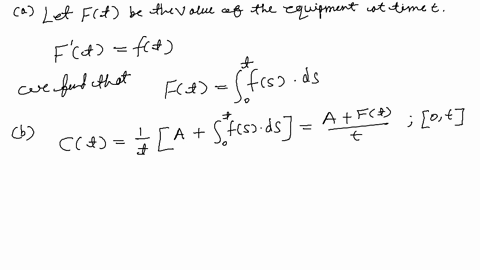 (a) Let F(t) be the value of the equipment at time t.
F'(t) = f(t)
we find that F(t) = ∫₀ᵗ f(s) · ds
(b) C(t) = 1/t [A + ∫₀ᵗ f(s) · ds] = (A + F(t))/t ; [0, t]